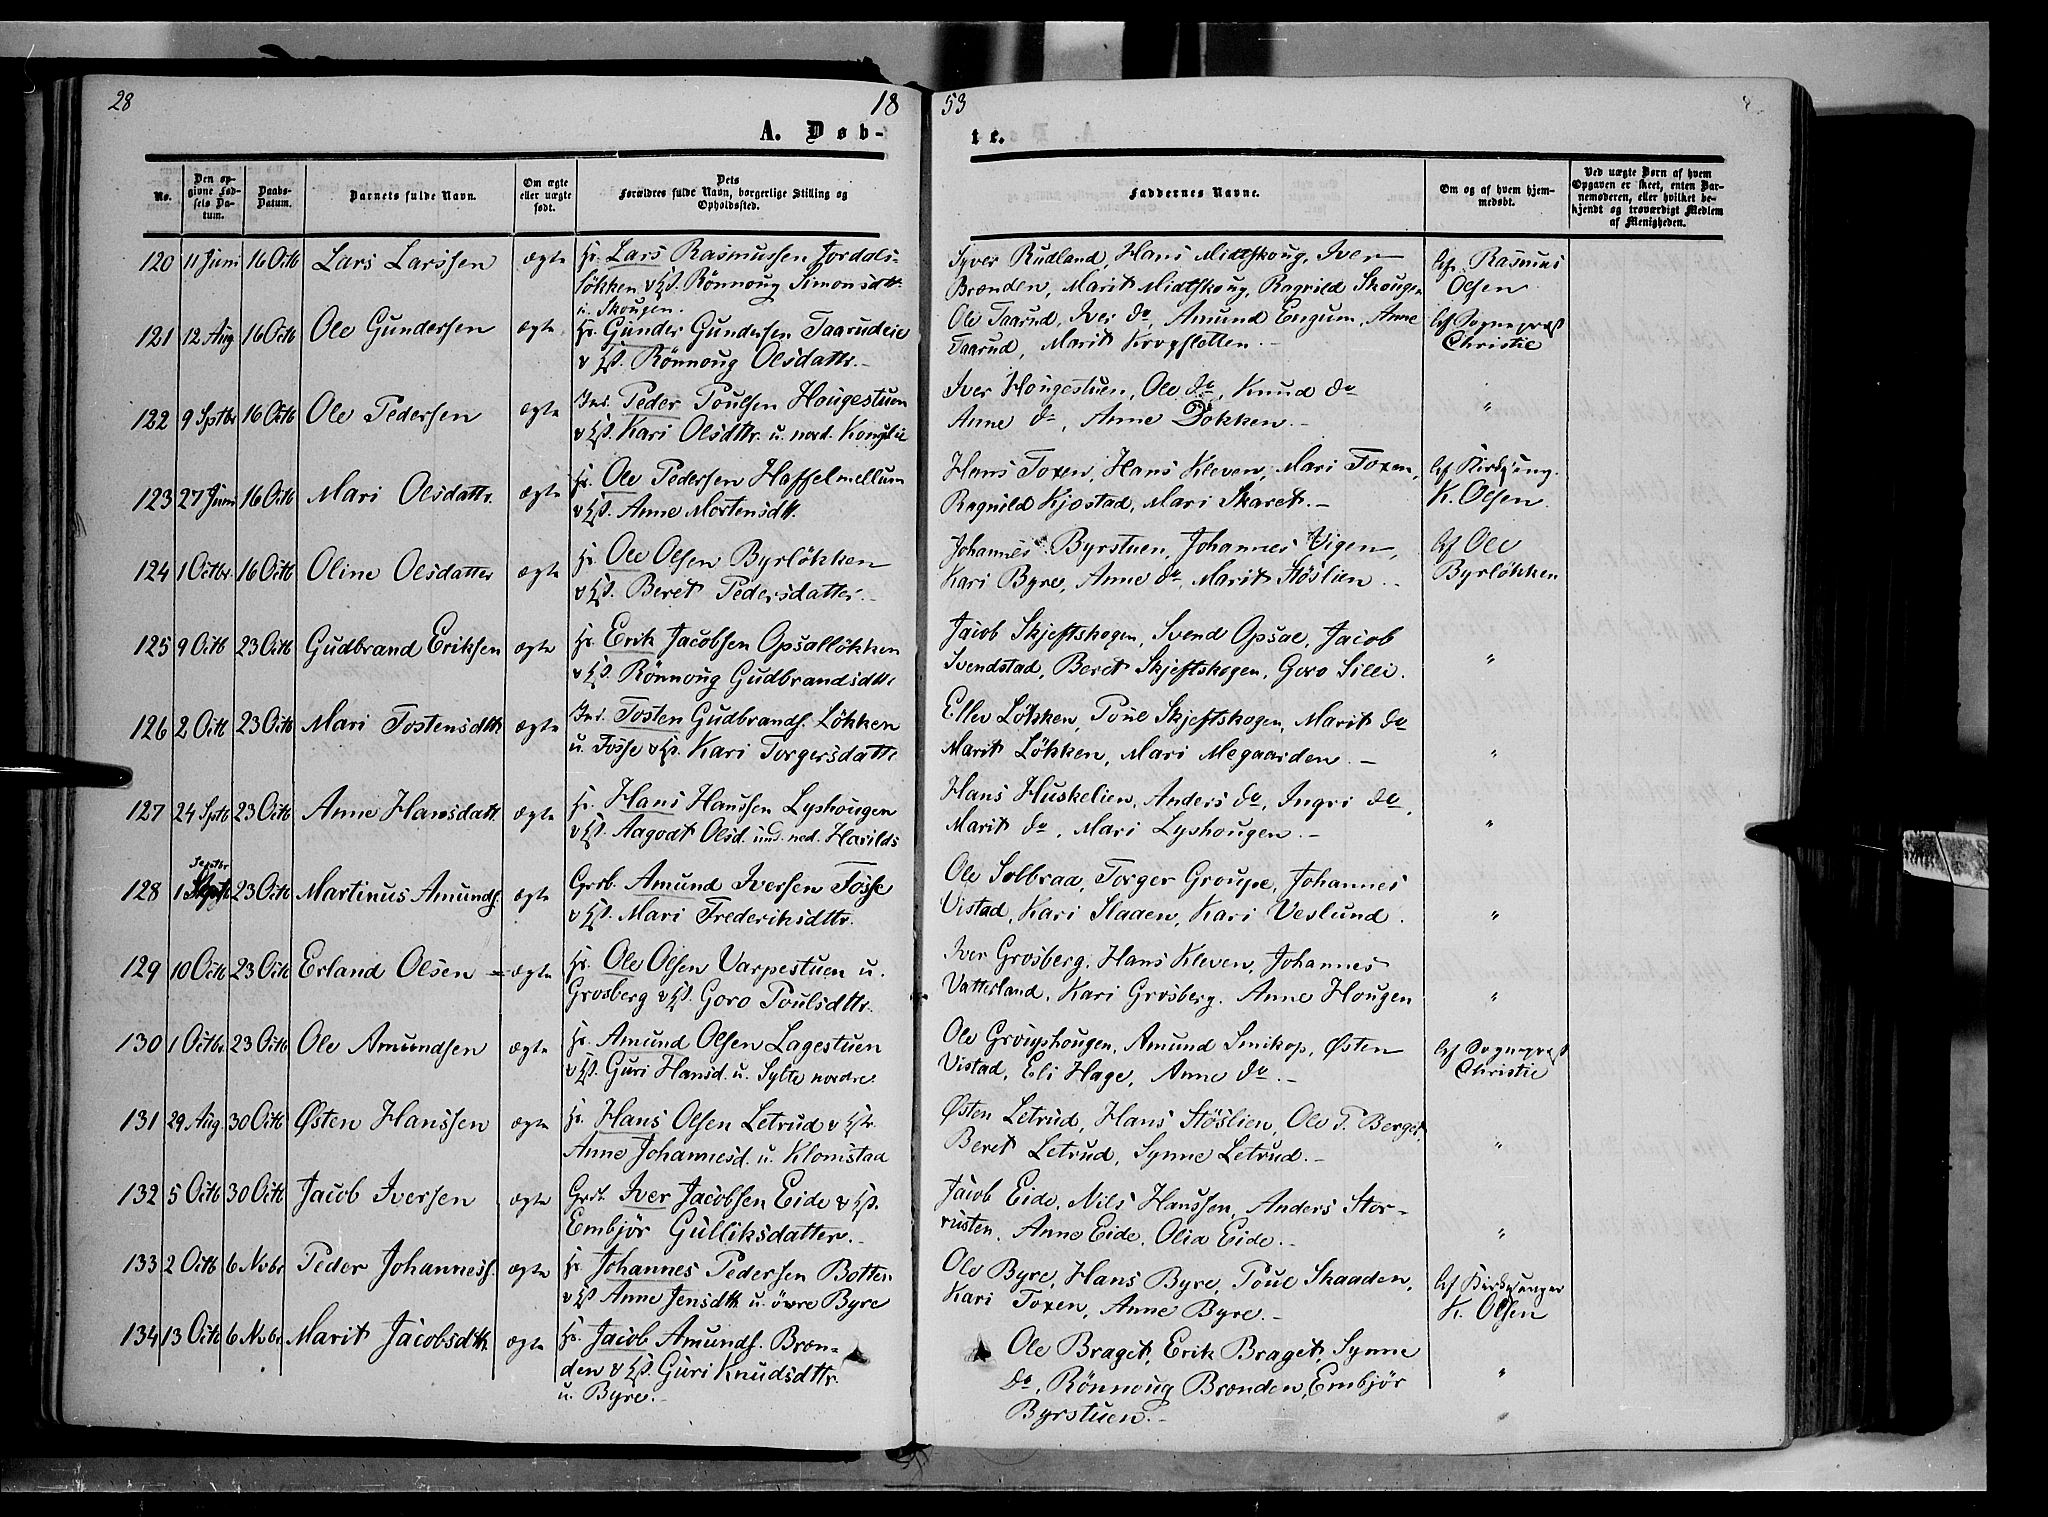 28
18
53
A. Døb-
te.
No.
Den op-
givne Fød-
sels Da-
tum.
Daabs-
Datum.
Barnets fulde Navn.
Om ægte
eller uægte
født.
Dets
Forældres fulde Navn, borgerlige Stilling og
Opholdssted.
Faddernes Navne.
Om og af hvem hjem-
medøbt.
Ved uægte Børn af hvem
Opgaven er skeet, enten Bar-
nemøderen, eller hvilket be-
kjendt og troværdigt Medlem
af Menigheden.
120 11 Juni 16 Octb Lars Larssen ægte Lars Rasmussen Jordals- Syver Rudland, Hans Midtskoug, Iver Rasmus
løkken Rönnoug Simonsdtr. Brænden, Marit Midtskoug, Ragnild Skougen Olsen
u. Skougen.
121 12 Aug 16 Octb Ole Gundersen ægte Gunder Gundersen Taarudeie Ole Taarud, Iver do, Amund Engum, Anne Af Sognepræst
Rönnoug Olsdattr. Taarud, Marit Krogsletten. Christie
122 9 Sptbr 16 Octb Ole Pedersen ægte Ind. Peder Poulsen Hougestuen Iver Hougestuen, Ole do, Knud do "
Kari Olsdttr. u. nord. Konglie Anne do, Anne Dokken.
123 27 Juni 16 Octb Mari Olsdattr. ægte Ole Pedersen Haffelmellum Hans Toxen, Hans Kleven, Mari Toxen, Af Kirkesung.
Anne Mortensdtt. Ragnild Kjostad, Mari Skaret. K. Olsen.
124 1 Octbr. 16 Octb Oline Olsdatter ægte Ole Olsen Byrløkken Johannes Byrstuen, Johannes Vigen, Af Ole
Beret Pedersdatter. Kari Byre, Anne do, Marit Stöslien. Byrløkken
125 9 Octb 23 Octb Gudbrand Eriksen ægte Erik Jacobsen Opsalløkken Jacob Skjeftskogen, Svend Opsal, Jacob
Rönnoug Gudbrandsdtt. Svendstad, Beret Skjeftskogen, Goro Silli. "
126 2 Octb 23 Octb Mari Tostensdtt. ægte Ind. Tosten Gudbrands. Løkken Ellev Løkken, Poul Skjeftskogen, Marit do
u. Fosse Kari Torgersdattr. Marit Løkken, Mari Megaarden. "
127 24 Sptb 23 Octb Anne Hansdatt. ægte Hans Hanssen Lyshougen Hans Huskelien, Anders do, Ingri do,
Aagodt Olsd. und. ned. Harilds Marit do, Mari Lyshougen. "
Septbr
128 1 23 Octb Martinus Amunds. ægte Grb. Amund Iversen Fosse Ole Solbraa, Torger Groupe, Johannes
Mari Frederiksdttr. Vistad, Kari Slaaen, Kari Veslund. "
129 10 Octb 23 Octb Erland Olsen ægte Ole Olsen Varpestuen u. Iver Grosberg, Hans Kleven, Johannes
Grosberg Goro Poulsdttr. Vatterland, Kari Grosberg. Anne Hougen "
130 1 Octbr 23 Octb Ole Amundsen ægte Amund Olsen Lagestuen Ole Grouphougen, Amund Snikop, Østen Af Sognepræst
Guri Hansd. u. Sylte nordre. Vistad, Eli Hage, Anne do. Christie
131 29 Aug. 30 Octb Østen Hanssen ægte Hans Olsen Letrud Østen Letrud, Hans Stöslien, Ole P. Berget,
Anne Johannesd. u. Klomstad Beret Letrud, Synne Letrud. "
132 5 Octb 30 Octb Jacob Iversen ægte Iver Jacobsen Eide Jacob Eide, Nils Hanssen, Anders Stor-
Embjör Gulliksdatter. rusten, Anne Eide, Olia Eide. "
133 2 Octb 6 Nvbr Peder Johanness. ægte Johannes Pedersen Botten Ole Byre, Hans Byre, Poul Skaaden, Af Kirkesanger
Anne Jensdtt. u. övre Byre Kari Toxen, Anne Byre. K. Olsen
134 13 Octb 6 Nvbr Marit Jacobsdtt. ægte Jacob Amunds. Bræn- Ole Braget, Erik Braget, Synne
den Guri Knudsdttr. do, Rönnoug Brænden, Embjör "
u. Byre. Byrstuen.